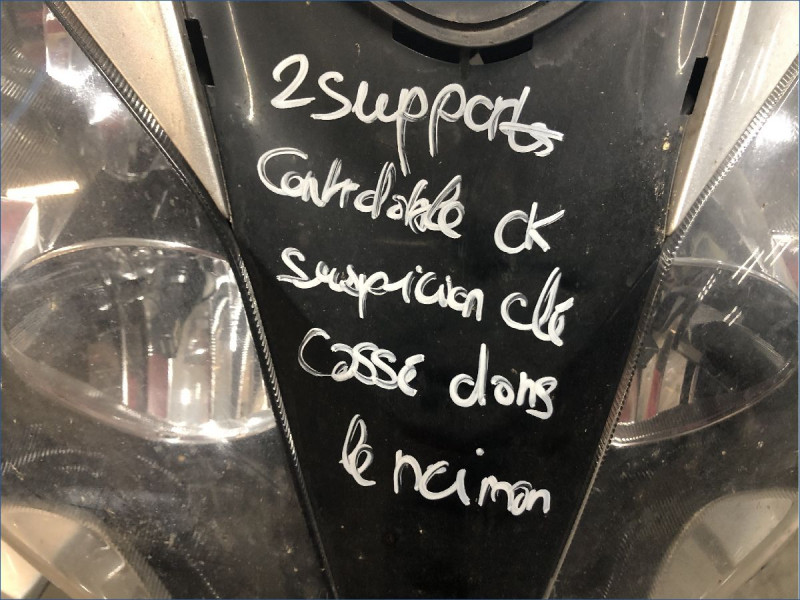 2 supports
Controlable OK
suspicion clé
cassé dans
le neiman